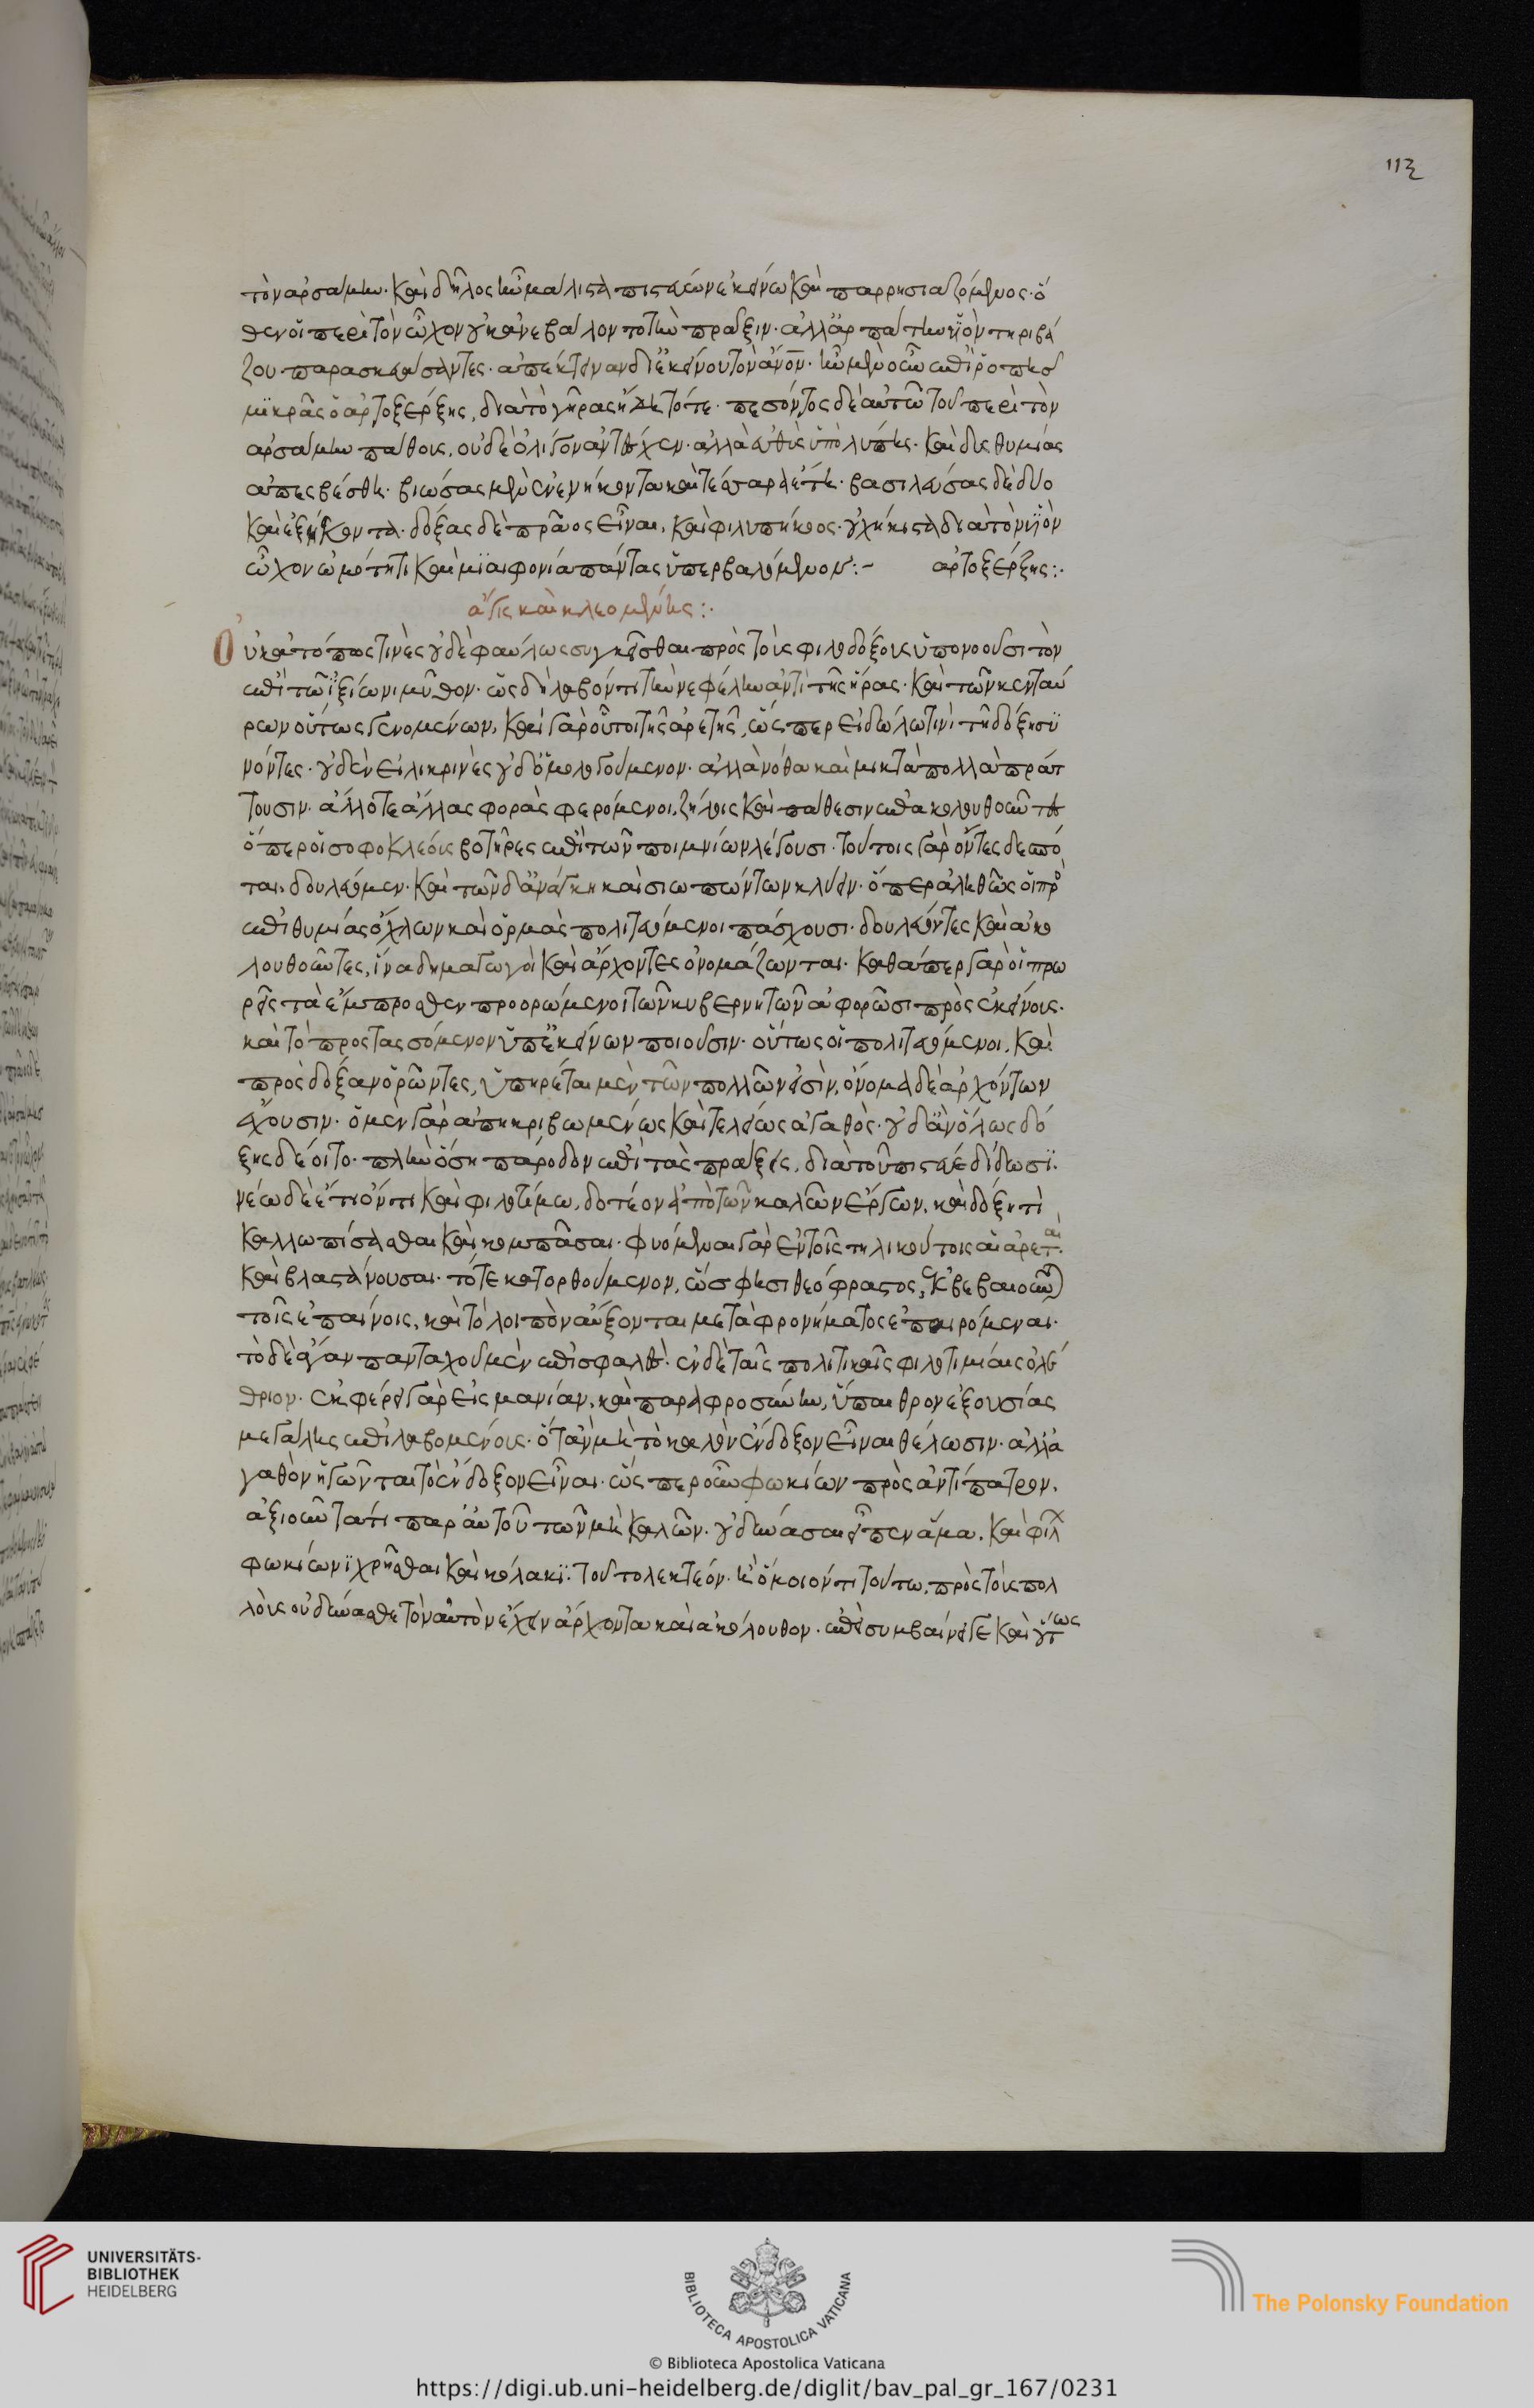 τὸν ἀρσάμην· καὶ δῆλος ἦν μάλιστα πιστεύων ἐκείνω καὶ παρρησιαζόμενος· ὅ
θεν οἱ περὶ τὸν ὦχον οὐκ ἀνεβάλοντο τὴν πρᾶξιν· ἀλλ' ἁρπάτην ὑϊὸν τηριβά
ζου παρασκευάσαντες· ἀπέκτειναν δι' ἐκείνου τὸν ἄνον· ἦν μὲν οὖν ἐπὶ ῥοπῆς
μϊκρᾶς ὁ ἀρτοξέρξης, διὰ τὸ γῆρας ἤδη τότε· πεσόντος δὲ αὐτῶ τοῦ περὶ τὸν
ἀρσάμην πάθους, οὐδὲ ὀλίγον ἀντέσχεν· ἀλλὰ εὐθὺς ὑπὸ λύπης· καὶ δυσθυμίας
ἀπεσβέσθη· βιώσας μὲν ἐνενήκοντα καὶ τέσσαρα ἔτη· βασιλεύσας δὲ δύο
καὶ ἑξήκοντα· δόξας δὲ πρᾶος εἶναι, καὶ φιλυπήκοος· οὐχ ἥκιστα διὰ τὸν ὑϊὸν
ὦχον ὠμότητι καὶ μϊαιφονία πάντας ὑπερβαλόμενον:- ἀρτοξέρξης:·
ἆγις καὶ κλεομένης:·
Οὐκ ἀτόπως τινὲς οὐδὲ φαύλως συγκεῖσθαι πρὸς τοὺς φιλοδόξους ὑπονοοῦσι τὸν
ἐπὶ τῶ ἰξίωνι μῦθον· ὡς δὴ λαβόντι τὴν νεφέλην ἀντὶ τῆς ἥρας· καὶ τῶν κενταύ
ρων οὕτως γενομένων, καὶ γὰρ οὗτοι τῆς ἀρετῆς, ὥσπερ εἰδώλω τινὶ τῆ δόξη συ
νόντες· οὐδὲν εἰλικρινὲς οὐδ' ὁμολογούμενον· ἀλλὰ νόθα καὶ μικτὰ πολλὰ πράτ
τουσιν· ἄλλοτε ἄλλας φορὰς φερόμενοι, ζήλοις καὶ πάθεσιν ἐπακολουθοῦντες
ὅπερ οἱ σοφοκλέους βοτῆρες ἐπὶ τῶν ποιμνίων λέγουσι· τούτοις γὰρ ὄντες δεσπό
ται, δουλεύομεν· καὶ τῶνδ' ἀνάγκη καὶ σιωπώντων κλύειν· ὅπερ ἀληθῶς οἱ πρὸ
ἐπιθυμίας ὄχλων καὶ ὁρμὰς πολιτευόμενοι πάσχουσι· δουλεύοντες καὶ ἀκο
λουθοῦντες, ἵνα δημαγωγοὶ καὶ ἄρχοντες ὀνομάζωνται· καθάπερ γὰρ οἱ πρω
ρεῖς τὰ ἔμπροσθεν προορώμενοι τῶν κυβερνητῶν ἀφορῶσι πρὸς ἐκείνους·
καὶ τὸ προστασσόμενον ὑπ' ἐκείνων ποιοῦσιν· οὕτως οἱ πολιτευόμενοι, καὶ
πρὸς δόξαν ὁρῶντες, ὑπηρέται μὲν τῶν πολλῶν εἰσὶν, ὄνομα δὲ ἀρχόντων
ἔχουσιν· ὁ μὲν γὰρ ἀπηκριβωμένως καὶ τελείως ἀγαθὸς· οὐδ' ἂν ὅλως δό
ξης δέοιτο· πλὴν ὅση πάροδον ἐπὶ τὰς πράξεις, διὰ τοῦ πιστεύε δίδωσϊ·
νέω δὲ ἔτι ὄντι καὶ φιλοτίμω, δοτέον ἀπὸ τῶν καλῶν ἔργων, καὶ δόξη τὶ
καλλωπίσασθαι καὶ κομπᾶσαι· φυόμεναι γὰρ ἐν τοῖς τηλικούτοις αἱ ἀρεταὶ·
καὶ βλαστάνουσαι· τότε κατορθούμενον, ὥς φησι θεόφραστος, ἐκβεβαιοῦν
τοῖς ἐπαίνοις, καὶ τὸ λοιπὸν αὔξονται μετὰ φρονήματος ἐπαιρόμεναι·
τὸ δὲ ἄγαν πανταχοῦ μὲν ἐπισφαλὲς· ἐν δὲ ταῖς πολιτικαῖς φιλοτιμίαις ὀλέ
θριον· ἐκφέρει γὰρ εἰς μανίαν, καὶ παραφροσύνην, ὕπαιθρον ἐξουσίας
μεγάλης ἐπιλαβομένους· ὅταν μὴ τὸ καλὸν ἔνδοξον εἶναι θέλωσιν· ἀλλὰ
γαθὸν ἡγῶνται τὸ ἔνδοξον εἶναι· ὥσπερ οὖν φωκίων πρὸς ἀντίπατρον,
ἀξιοῦντά τι παρ' αὐτοῦ τῶν μὴ καλῶν· οὐ δύνασαι εἶπεν ἅμα, καὶ φίλ
φωκίωνϊ χρῆσθαι καὶ κόλακϊ· τοῦτο λεκτέον· ἢ ὅμοιόν τι τούτω, πρὸς τοὺς πολ
λούς οὐ δύνασθε τὸν αὐτὸν ἔχειν ἄρχοντα καὶ ἀκόλουθον· ἐπεὶ συμβαίνει γε καὶ οὕτως
113
UNIVERSITÄTS-
BIBLIOTHEK
HEIDELBERG
BIBLIOTECA APOSTOLICA VATICANA
© Biblioteca Apostolica Vaticana
The Polonsky Foundation
https://digi.ub.uni-heidelberg.de/diglit/bav_pal_gr_167/0231